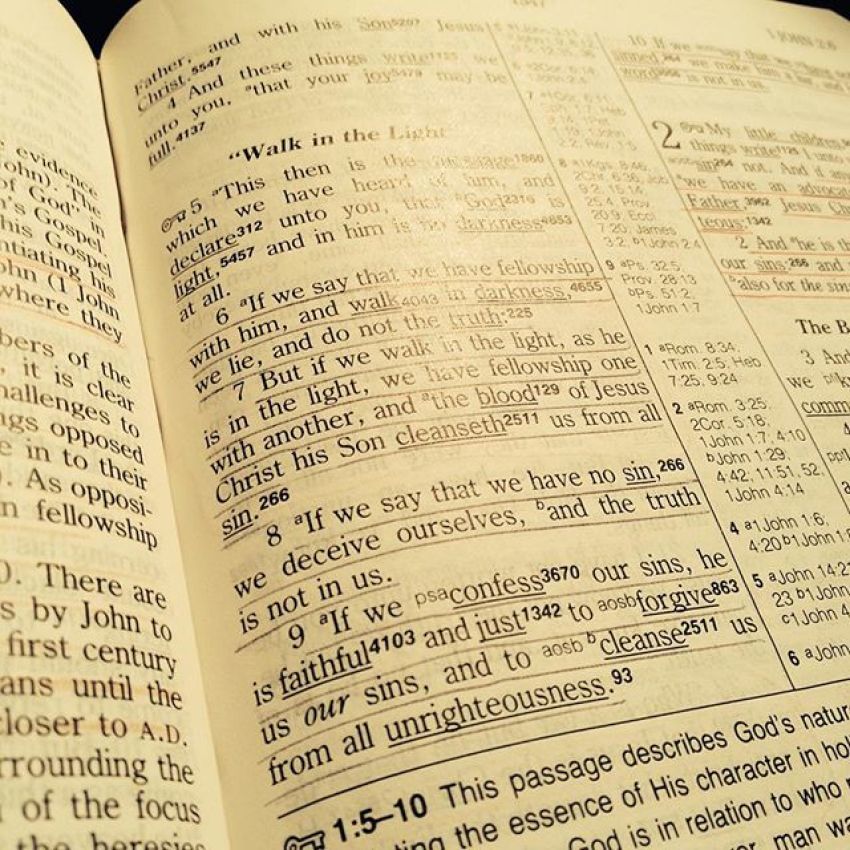 evidence
John). The
of God" in
n's Gospel.
his Gospel
ntiating his
ohn (1 John
where they
bers of the
, it is clear
hallenges to
ngs opposed
e in to their
). As opposi-
n fellowship
0). There are
s by John to
first century
ans until the
closer to A.D.
rrounding the
of the focus
the heresies
Father, and with his Son5207 Jesus
Christ.5547
4 And these things write1125 we
unto you, athat your joy5479 may be
full.4137
"Walk in the Light"
5 aThis then is the message1860
which we have heard of him, and
declare312 unto you, that God2316 is
light,5457 and in him is no darkness4653
at all.
6 aIf we say that we have fellowship
with him, and walk4043 in darkness,4655
we lie, and do not the truth:225
7 But if we walk in the light, as he
is in the light, we have fellowship one
with another, and athe blood129 of Jesus
Christ his Son cleanseth2511 us from all
sin.266
8 aIf we say that we have no sin,266
we deceive ourselves, band the truth
is not in us.
9 aIf we psaconfess3670 our sins, he
is faithful4103 and just1342 to aosbforgive863
us our sins, and to aosb bcleanse2511 us
from all unrighteousness.93
1:5–10 This passage describes God's nature
ting the essence of His character in hol
God is in relation to who
man wa
8 a1Kgs. 8:46;
2Chr. 6:36; Job
9:2; 15:14;
25:4; Prov.
20:9; Eccl.
7:20; James
3:2; b1John 2:4
9 aPs. 32:5;
Prov. 28:13
bPs. 51:2;
1John 1:7
1 aRom. 8:34;
1Tim. 2:5; Heb.
7:25; 9:24
2 aRom. 3:25;
2Cor. 5:18;
1John 1:7; 4:10
bJohn 1:29;
4:42; 11:51, 52;
1John 4:14
4 a1John 1:6;
4:20 b1John 1:
5 aJohn 14:21
23 b1John
c1John 4
6 aJohn
1 JOHN 2:6
10 If we say that we have
sinned264 we make him a liar, and
word is not in us.
2 My little children,
things write1125 I unto
aosbsin264 not. And if a
awe have an advocat
Father,3962 Jesus Chr
teous:1342
2 And ahe is th
our sins:266 and
balso for the sins
The B
3 And
we
comm